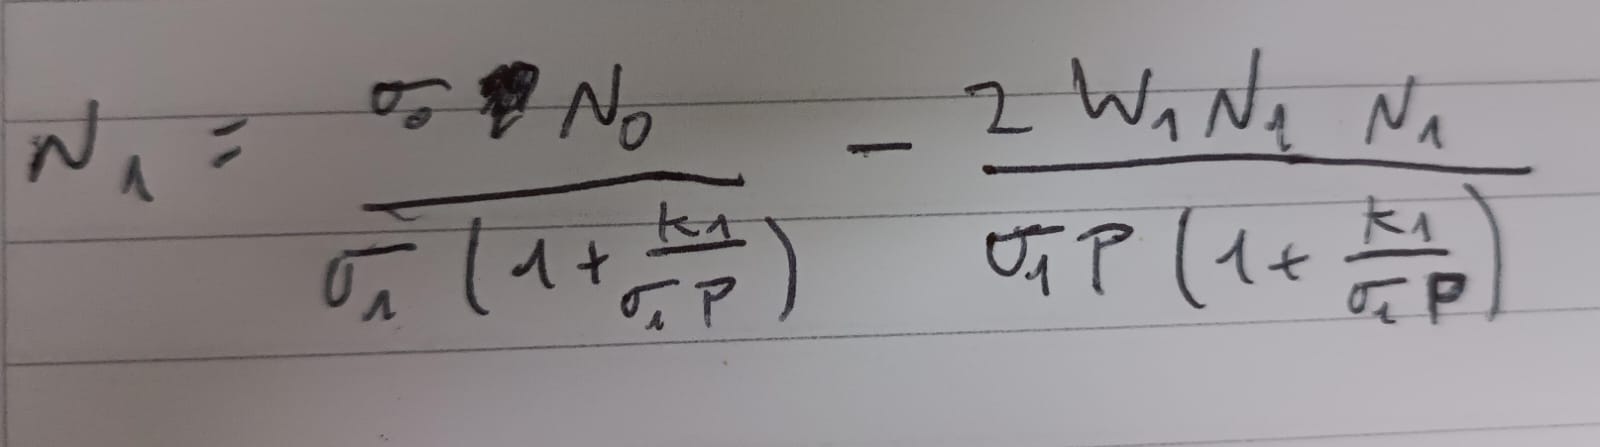 N₁ = \frac{σ₀ N₀}{σ₁ (1 + \frac{k₁}{σ₁ P})} - \frac{2 W₁ N₁ N₁}{σ₁ P (1 + \frac{k₁}{σ₁ P})}